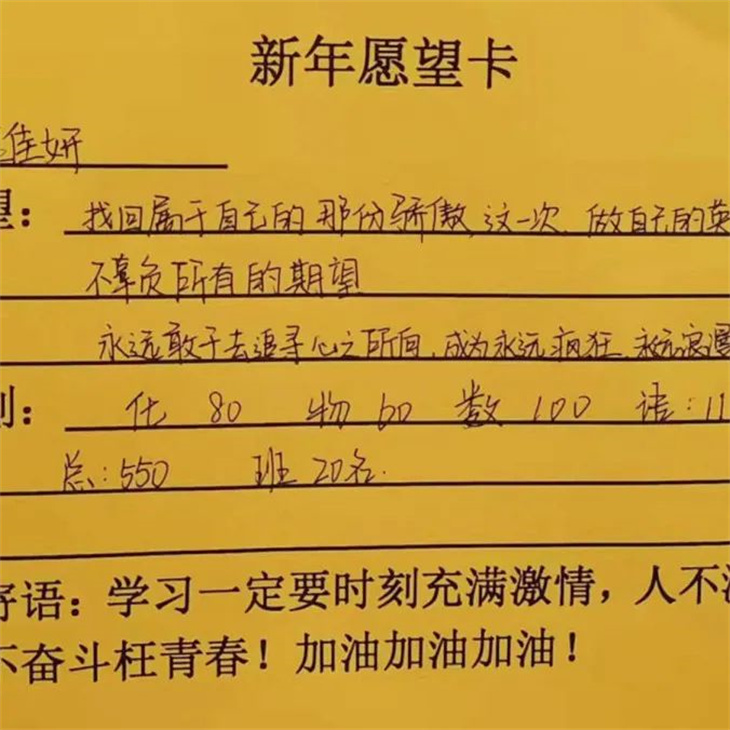 新年愿望卡
佳妍
望：找回属于自己的那份骄傲,这一次,做自己的英
不辜负所有的期望
永远敢于去追寻心之所向,成为永远疯狂,永远浪漫
划：化 80 物 60 数 100 语：11
总：550 班 20名.
寄语：学习一定要时刻充满激情，人不
不奋斗枉青春！加油加油加油！